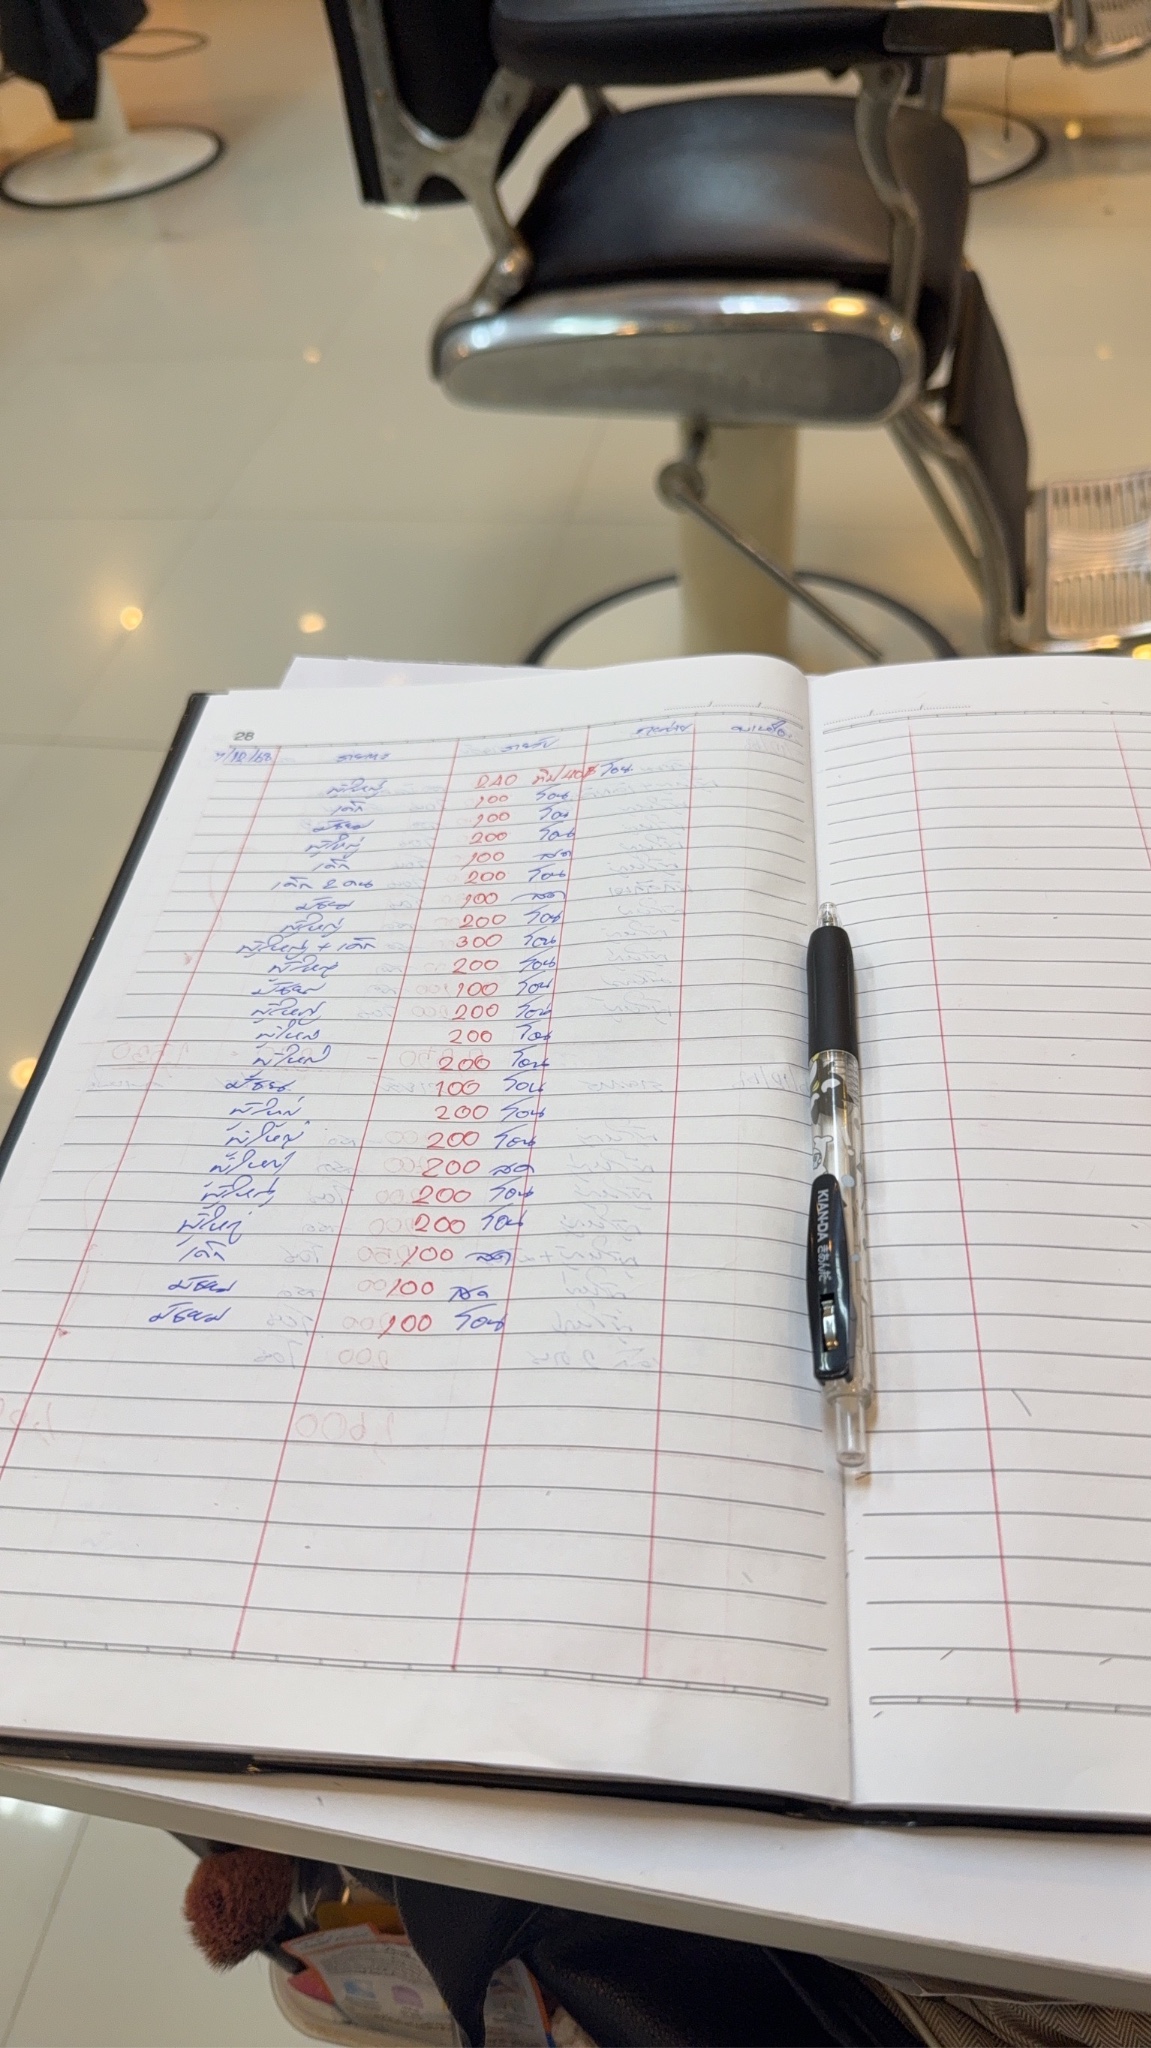 28
7/12/68 รายการ รายรับ รายจ่าย คงเหลือ
ผู้ใหญ่ 240 ทิป/40฿ โอน
เด็ก 100 โอน
มัธยม 100 โอน
ผู้ใหญ่ 200 โอน
เด็ก 100 สด
เด็ก 2 คน 200 โอน
มัธยม 100 สด
ผู้ใหญ่ 200 โอน
ผู้ใหญ่ + เด็ก 300 โอน
ผู้ใหญ่ 200 โอน
มัธยม 100 โอน
ผู้ใหญ่ 200 โอน
ผู้ใหญ่ 200 โอน
ผู้ใหญ่ 200 โอน
มัธยม 100 โอน
ผู้ใหญ่ 200 โอน
ผู้ใหญ่ 200 โอน
ผู้ใหญ่ 200 สด
ผู้ใหญ่ 200 โอน
ผู้ใหญ่ 200 โอน
เด็ก 100 สด
มัธยม 100 สด
มัธยม 100 โอน
KIAN-DA きあんだ